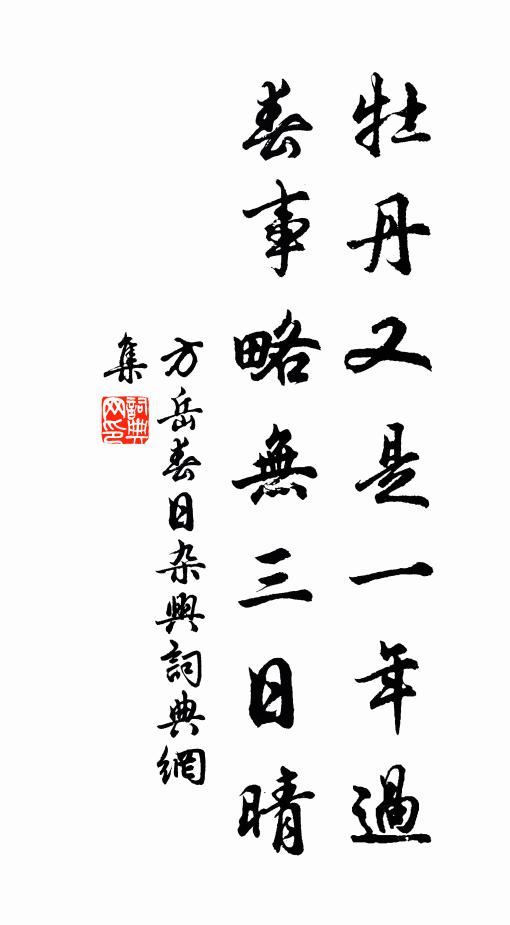 牡丹又是一年過
春事略無三日晴
方岳春日杂興詞典網
集
詞典
网印